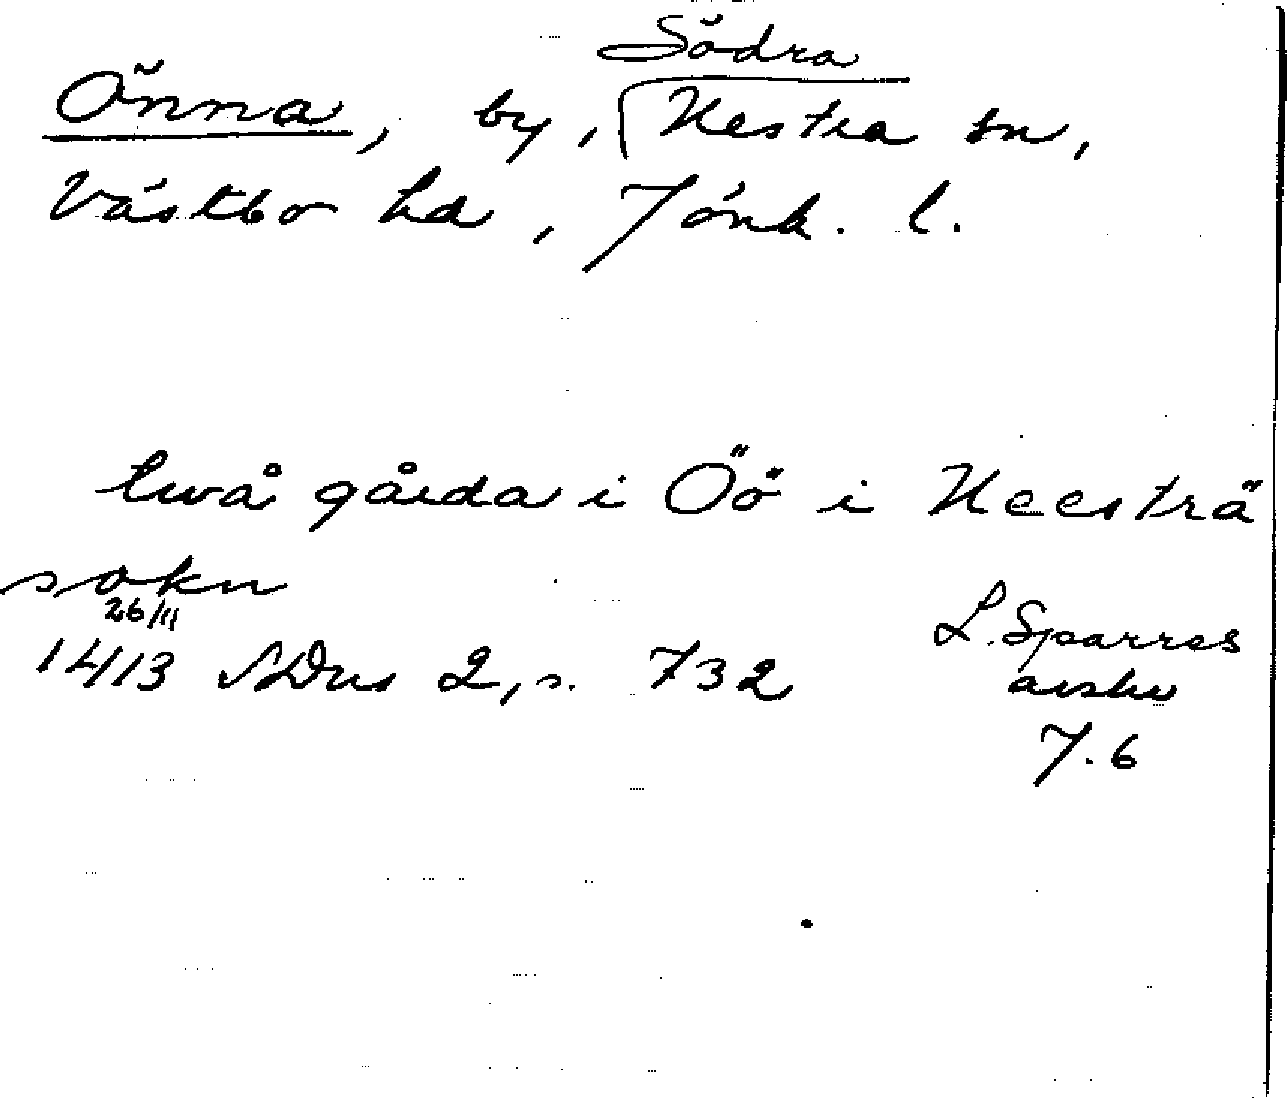 Södra
Önna, by, Hestra sn,
Västbo hd, Jönk. l.
twå gårda i Öö i Heesträ
sokn
26/11
1413 SDns 2, s. 732
L. Sparres
arshu
7.6